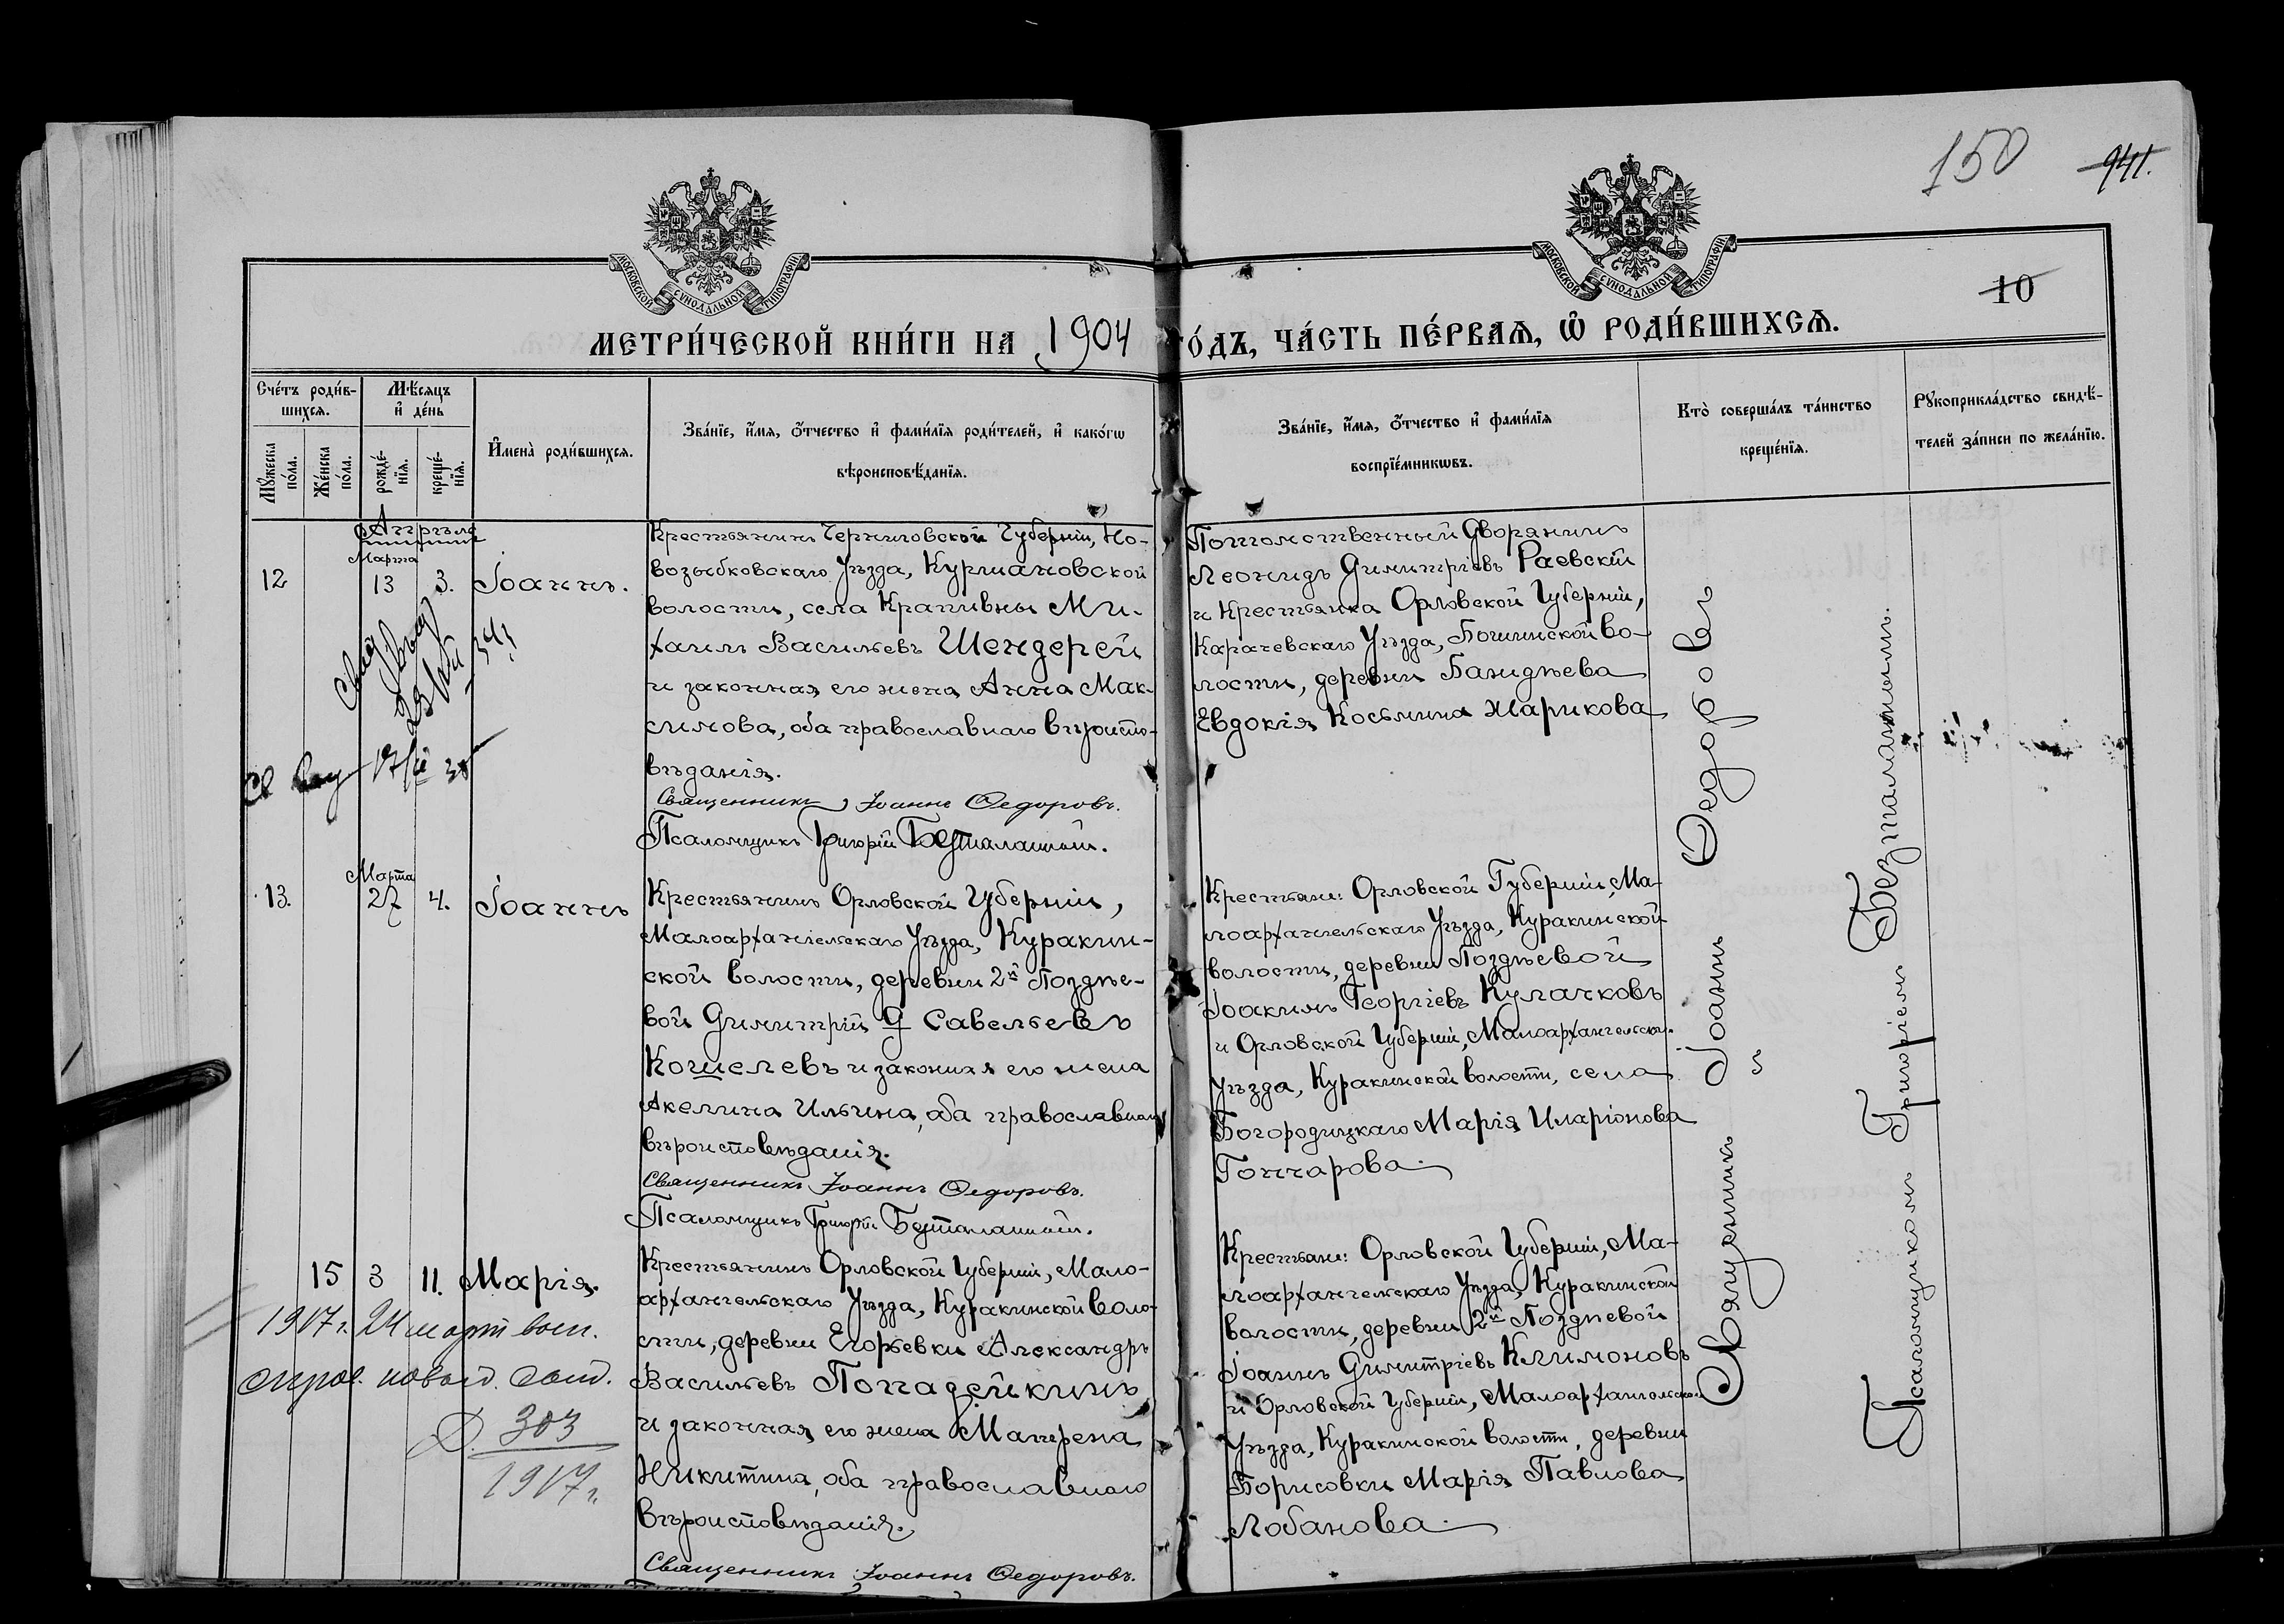 150
941.
МОСКОВСКОЙ СУНОДАЛЬНОЙ ТИПОГРАФІИ
МОСКОВСКОЙ СУНОДАЛЬНОЙ ТИПОГРАФІИ
10
МЕТРИ́ЧЕСКОЙ КНИ́ГИ НА 1904 ГО́ДЪ, ЧА́СТЬ ПЕ́РВАѦ, Ѡ҆ РОДИ́ВШИХСѦ.
Сче́тъ роди́в-
шихсѧ.
Мꙋ́жеска по́ла.
Же́нска по́ла.
Мѣ́сѧцъ
и҆ де́нь
рожде́-
нїѧ.
креще́-
нїѧ.
И҆мена̀ роди́вшихсѧ.
Зва́нїе, и҆́мѧ, ѻ҆́тчество и҆ фами́лїѧ роди́телей, и҆ како́гѡ
вѣроисповѣ́данїѧ.
Зва́нїе, и҆́мѧ, ѻ҆́тчество и҆ фами́лїѧ
воспрїе́мникѡвъ.
Кто̀ соверша́лъ та́инство
креще́нїѧ.
Рꙋкоприкла́дство свидѣ́-
телей за́писи по жела́нїю.
Апрѣль
Марта
12
13
3.
Іоаннъ.
Крестьянинъ Черниговской Губерніи, Но-
возыбковскаго Уѣзда, Курмановской
волости, села Крапивны Ми-
хаилъ Васильевъ Шендерей
и законная его жена Анна Мак-
симова, оба православнаго вѣроиспо-
вѣданія.
Священникъ Іоаннъ Ѳедоровъ.
Псаломщикъ Григорій Безталанный.
Потомственный Дворянинъ
Леонидъ Димитріевъ Раевскій
и Крестьянка Орловской Губерніи,
Карачевскаго Уѣзда, Бошинской во-
лости, деревни
Евдокія Косьмина Жарикова
Марта
13.
27
4.
Іоаннъ
Крестьянинъ Орловской Губерніи,
Малоархангельскаго Уѣзда, Куракин-
ской волости, деревни 2й Позднѣе-
вой Димитрій Савельевъ
Кошелевъ и законная его жена
Акелина Ильина, оба православнаго
вѣроисповѣданія.
Священникъ Іоаннъ Ѳедоровъ.
Псаломщикъ Григорій Безталанный.
Крестьяне: Орловской Губерніи, Ма-
лоархангельскаго Уѣзда, Куракинской
волости, деревни Позднѣевой
Іоакимъ Георгіевъ Кулачковъ
и Орловской Губерніи, Малоархангельскаго
Уѣзда, Куракинской волости, села
Богородицкаго Марія Иларіонова
Гончарова.
15
3
11.
Марія.
1917 г. 24 март
303
1917 г.
Крестьянинъ Орловской Губерніи, Мало-
архангельскаго Уѣзда, Куракинской воло-
сти, деревни Егорьевки Александръ
Васильевъ Поппадейкинъ
и законная его жена Матрена
Никитина, оба православнаго
вѣроисповѣданія.
Священникъ Іоаннъ Ѳедоровъ.
Крестьяне: Орловской Губерніи, Ма-
лоархангельскаго Уѣзда, Куракинской
волости, деревни 2й Позднѣевой
Іоаннъ Димитріевъ Климоновъ
и Орловской Губерніи, Малоархангельскаго
Уѣзда, Куракинской волости, деревни
Борисовки Марія Павлова
Лобанова.
Священникъ Іоаннъ Ѳедоровъ
съ
Псаломщикомъ Григоріемъ Безталаннымъ.